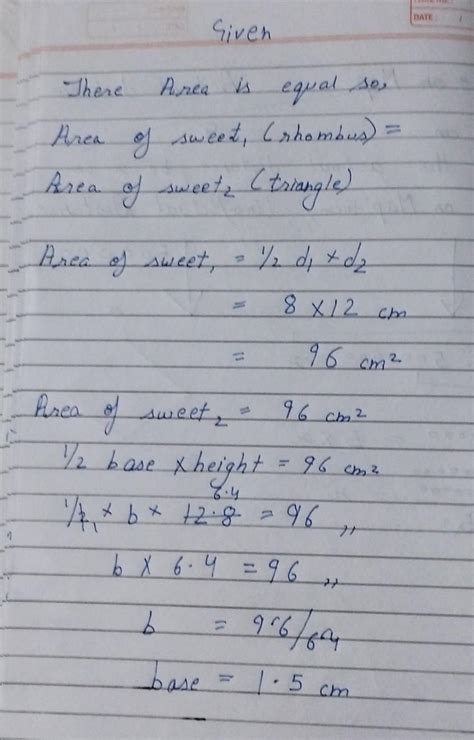 DATE:
Given
There Area is equal so,
Area of sweet₁ (rhombus) =
Area of sweet₂ (triangle)
Area of sweet₁ = 1/2 d₁ × d₂
= 8 × 12 cm
= 96 cm²
Area of sweet₂ = 96 cm²
1/2 base × height = 96 cm²
6.4
1/2₁ × b × 12.8 = 96 ,,
b × 6.4 = 96 ,,
b = 96/64
base = 1.5 cm